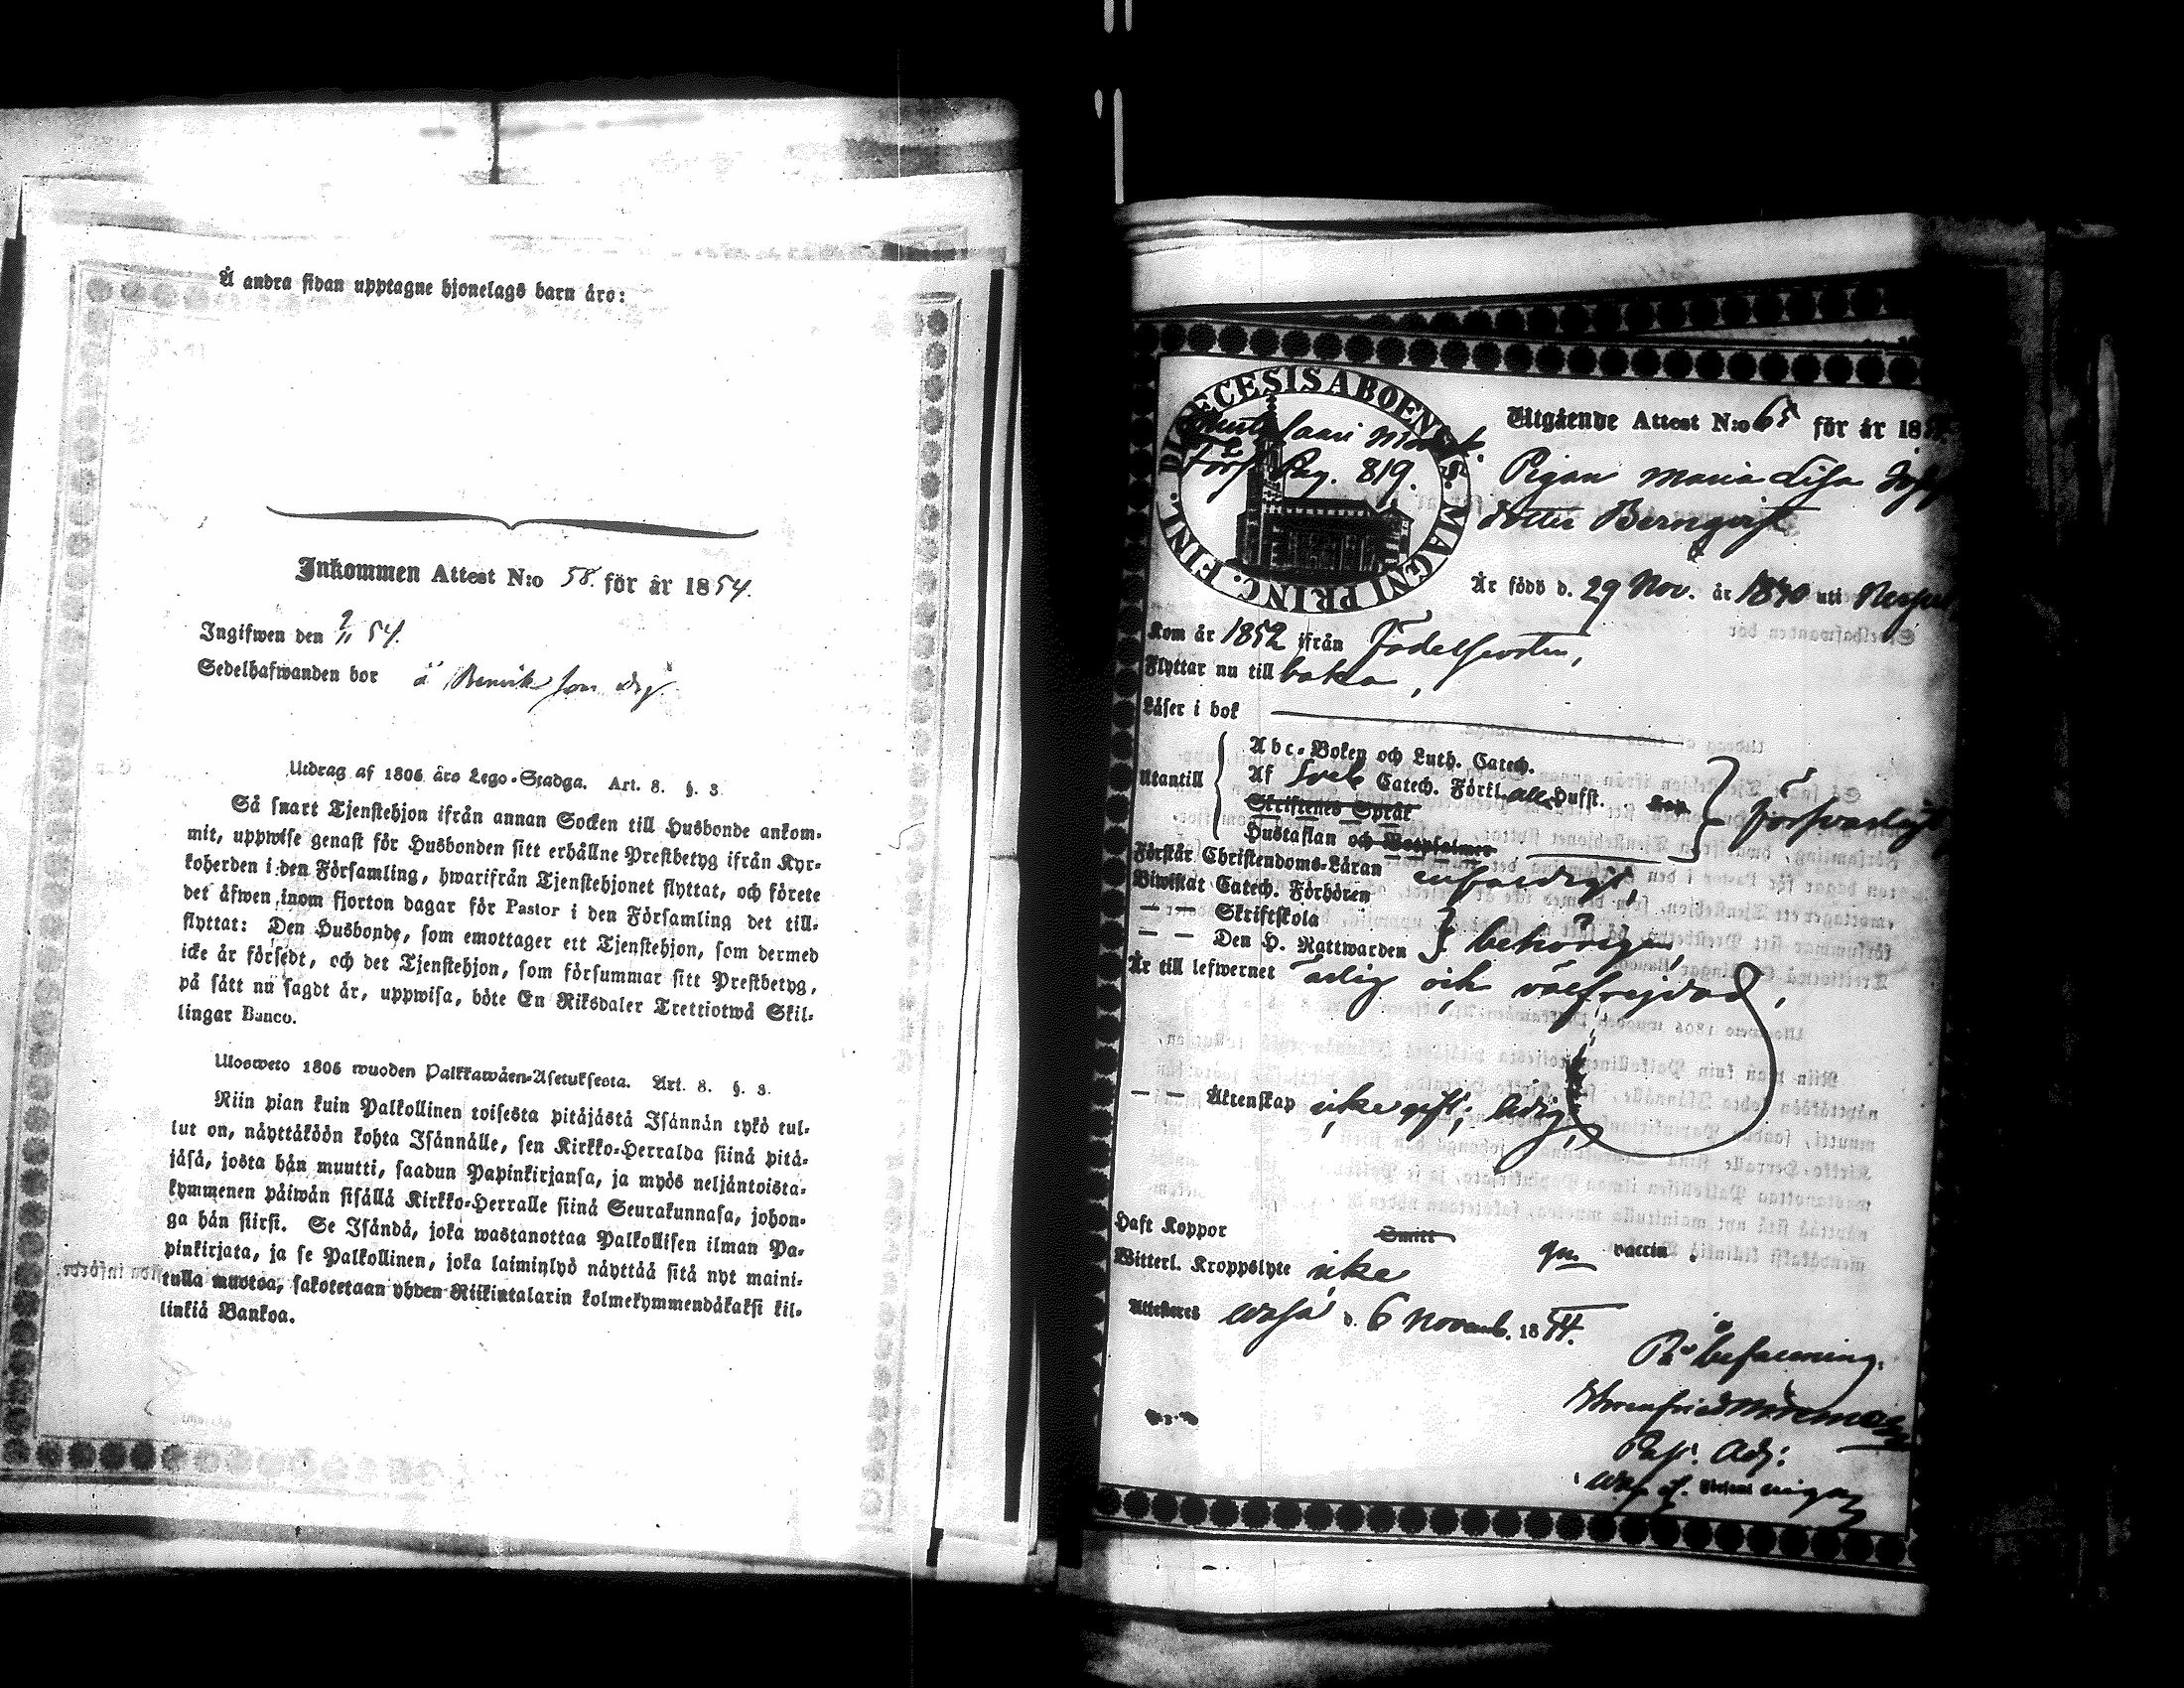 Å andra sidan upptagne hjonelags barn äro:
Inkommen Attest N:o 58. för år 1854.
Ingifwen den 9/11 54.
Sedelhafwanden bor å Benvik som drg.
Utdrag af 1806 års Lego-Stadga. Art. 8. §. 3.
Så snart Tjenstehjon ifrån annan Socken till Husbonde ankom-
mit, uppwise genast för Husbonden sitt erhållne Prestbetyg ifrån Kyr-
koherden i den Församling, hwarifrån Tjenstehjonet flyttat, och förete
det äfwen inom fjorton dagar för Pastor i den Församling det till-
flyttat: Den Husbonde, som emottager ett Tjenstehjon, som dermed
icke är försedt, och det Tjenstehjon, som försummar sitt Prestbetyg,
på sätt nu sagdt är, uppwisa, böte En Riksdaler Trettiotwå Skil-
lingar Banco.
Ulosweto 1806 wuoden Palkkawäen-Asetuksesta. Art. 8. §. 3.
Niin pian kuin Palkollinen toisesta pitäjästä Isännän tykö tul-
lut on, näyttäköön kohta Isännälle, sen Kirkko-Herralda siinä pitä-
jäsä, josta hän muutti, saadun Papinkirjansa, ja myös neljäntoista-
kymmenen päiwän sisällä Kirkko-Herralle siinä Seurakunnasa, johon-
ga hän siirsi. Se Isändä, joka wastanottaa Palkollisen ilman Pa-
pinkirjata, ja se Palkollinen, joka laiminlyö näyttää sitä nyt maini-
tulla muotoa, sakotetaan yhden Riikintalarin kolmekymmendäkaksi kil-
linkiä Bankoa.
DIŒCESIS ABOENSIS. MAGNI PRINC. FINL.
Förs. Pag. 819.
Utgående Attest N:o 65 för år 18
Pigan Maria Lisa
dotter Berngvist
Är född d. 29 Nov. år 1830 uti
Kom år 1852 ifrån Födelseorten,
Flyttar nu till baka,
Läser i bok
Utantill
Abc-Boken och Luth. Catech.
Af Sveb Catech. Förkl. alla Hufst.
Skriftenes Språk
Hustaflan och Botpsalmer
försvarligt
Förstår Christendoms-Läran enfaldigt,
Biwistat Catech. Förhören
— — Skriftskola
— — Den H. Nattwarden } behörigen,
Är till lefwernet ärlig och välfrejdad,
— — Äktenskap icke gift; ledig,
Haft Koppor Smitt gm vaccin.
Witterl. Kroppslyte icke
Attesteras Wasa d. 6 Novemb. 1854.
På befallning,
Past. Adj: